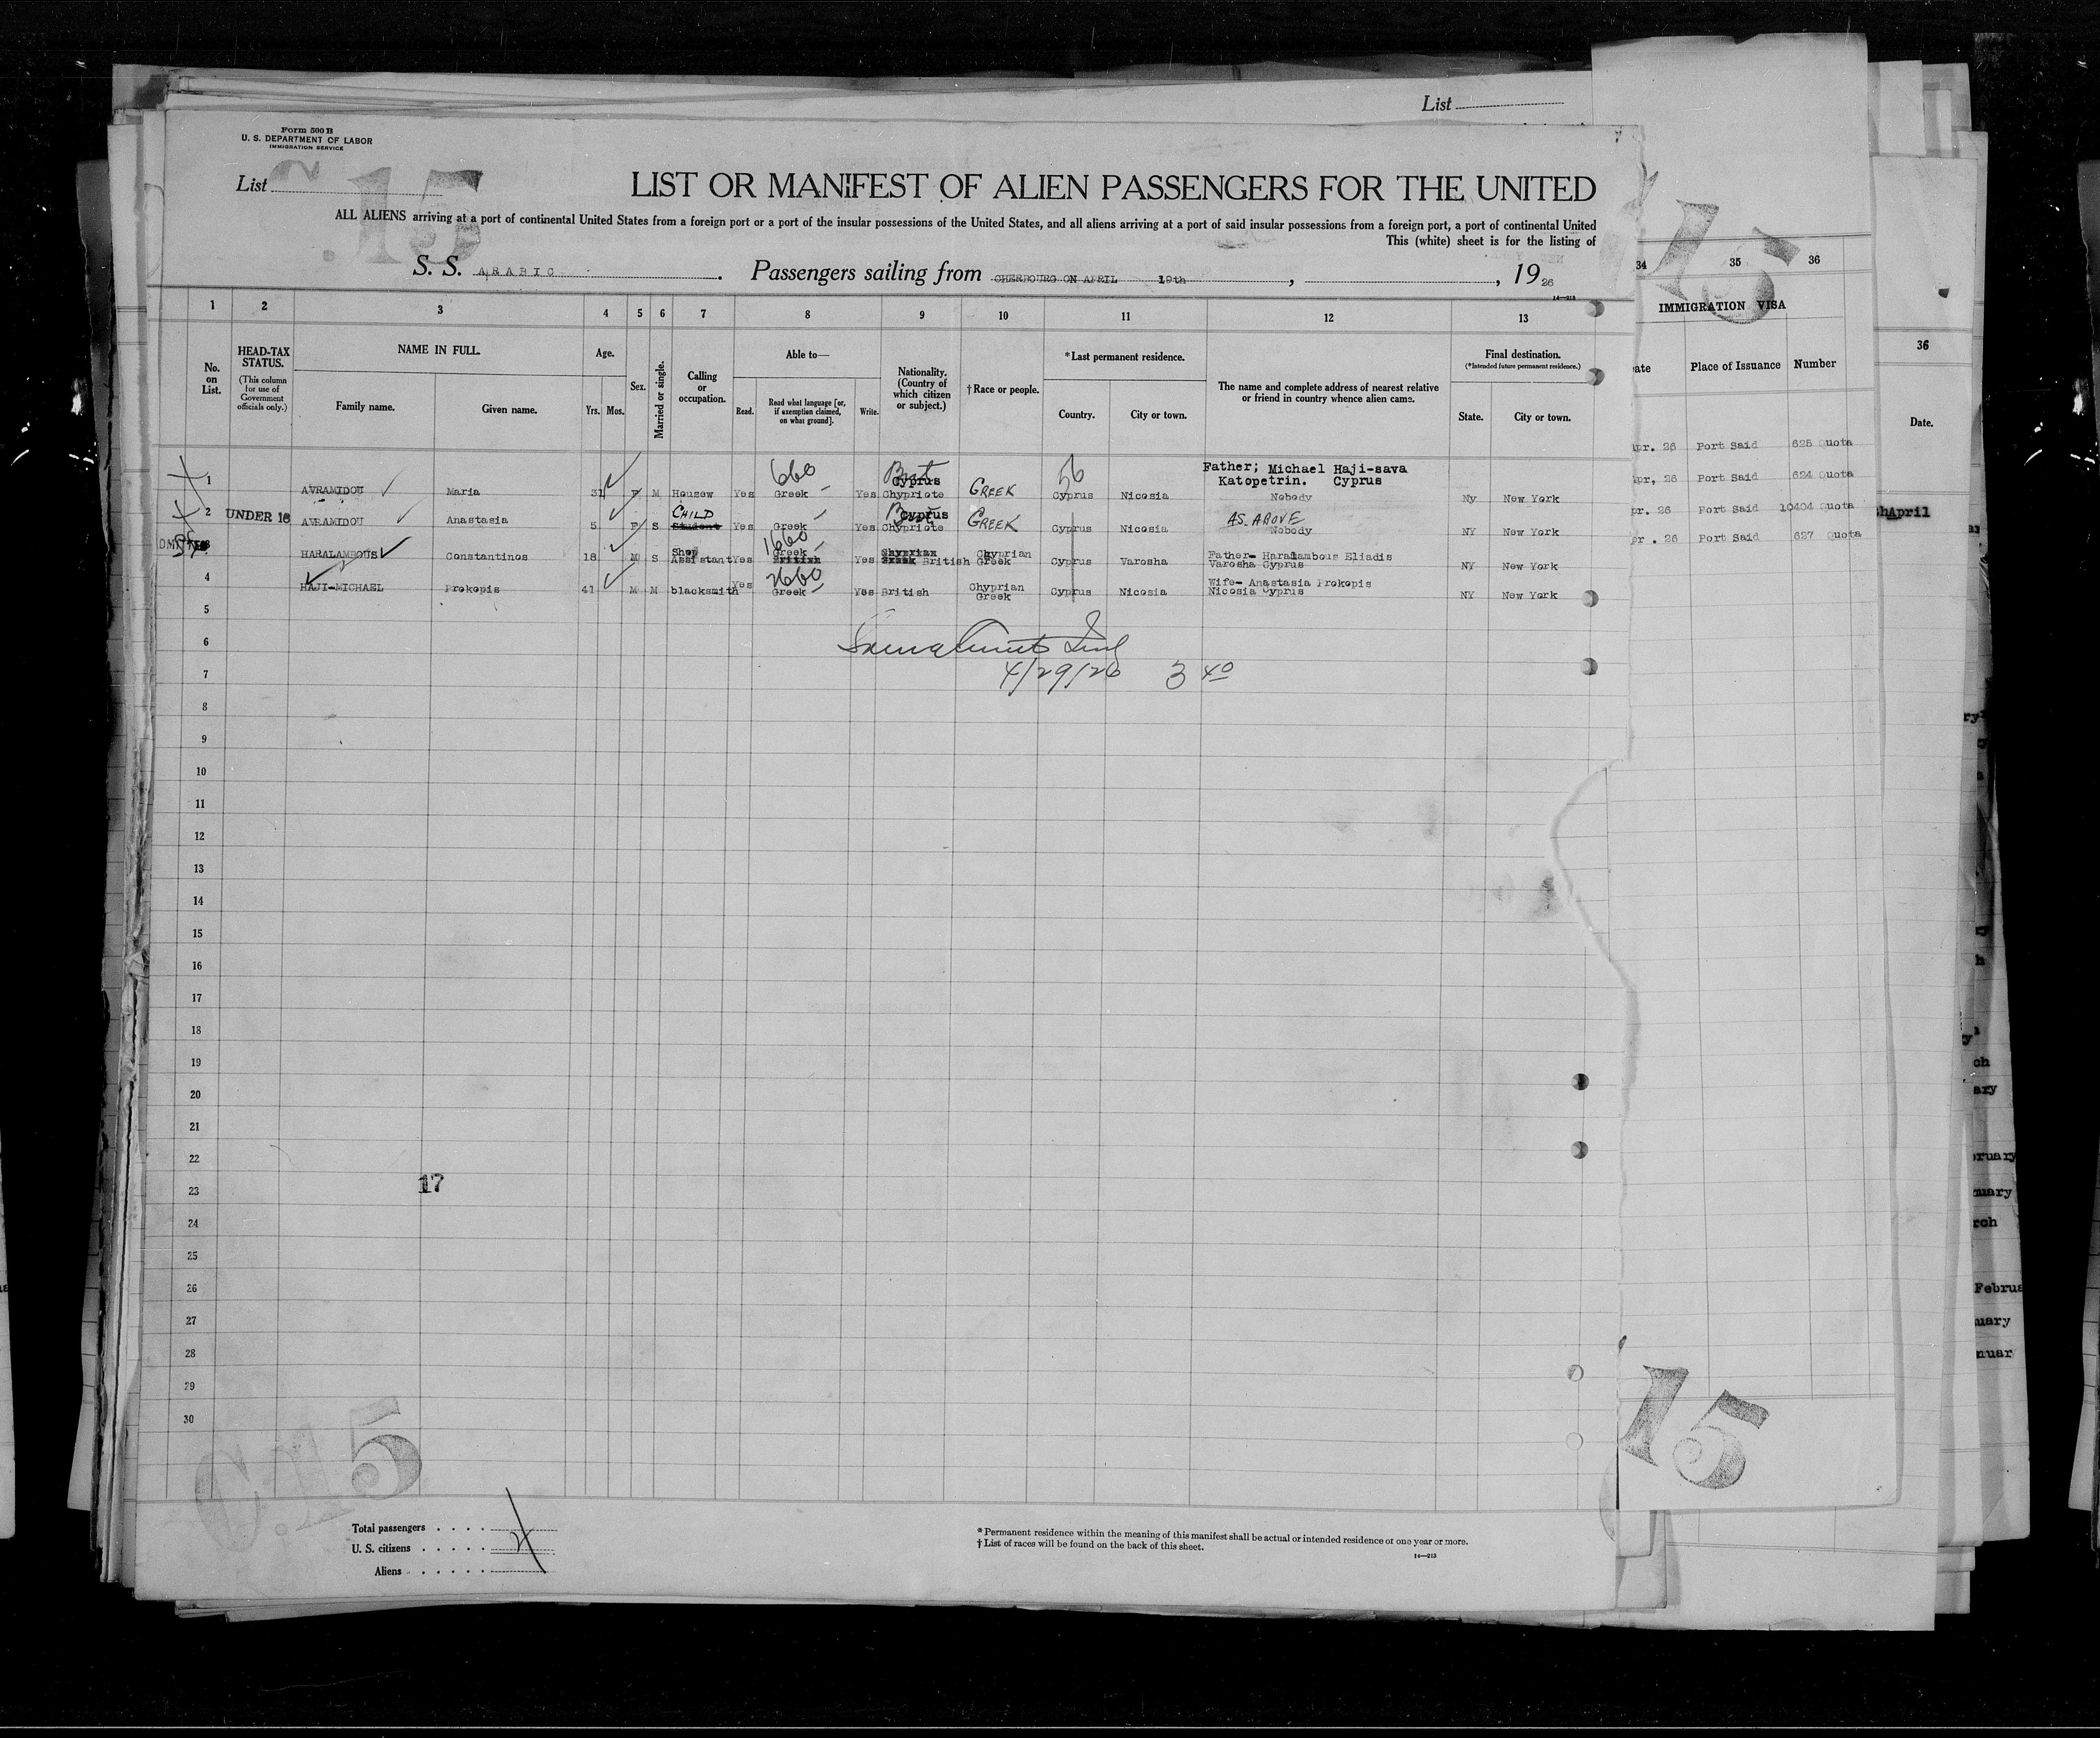 List
Form 500 B
U. S. DEPARTMENT OF LABOR
IMMIGRATION SERVICE
List C.15
LIST OR MANIFEST OF ALIEN PASSENGERS FOR THE UNITED
ALL ALIENS arriving at a port of continental United States from a foreign port or a port of the insular possessions of the United States, and all aliens arriving at a port of said insular possessions from a foreign port, a port of continental United
This (white) sheet is for the listing of
S. S. ARABIC. Passengers sailing from CHERBOURG ON APRIL 19th, , 1926
14—213
1 2 3 4 5 6 7 8 9 10 11 12 13
No. on List.
HEAD-TAX STATUS.
(This column for use of Government officials only.)
NAME IN FULL.
Family name. Given name.
Age.
Yrs. Mos.
Sex.
Married or single.
Calling or occupation.
Able to—
Read. Read what language [or, if exemption claimed, on what ground]. Write.
Nationality. (Country of which citizen or subject.)
†Race or people.
*Last permanent residence.
Country. City or town.
The name and complete address of nearest relative or friend in country whence alien came.
Final destination.
(*Intended future permanent residence.)
State. City or town.
34 35 36
15
IMMIGRATION VISA
ate Place of Issuance Number
36
Date.
660 Cyprus 56 Father; Michael Haji-sava
Katopetrin. Cyprus
1 AVRAMIDOU Maria 31 F M Housew Yes Greek Yes Chypriote GREEK Cyprus Nicosia Nobody Ny New York
CHILD Cyprus AS ABOVE
2 UNDER 16 AVRAMIDOU Anastasia 5 F S Student Yes Greek Yes Chypriote GREEK Cyprus Nicosia Nobody NY New York
1660
3 HARALAMBOUS Constantinos 18 M S Shop Assistant Yes Greek British Yes Chyprian Greek British Chyprian Greek Cyprus Varosha Father- Haralambous Eliadis
Varosha Cyprus NY New York
2660
4 HAJI-MICHAEL Prokopis 41 M M blacksmith Yes Greek Yes British Chyprian Greek Cyprus Nicosia Wife- Anastasia Prokopis
Nicosia Cyprus NY New York
pr. 26 Port Said 625 Quota
pr, 26 Port Said 624 Quota
pr. 26 Port Said 10404 Quota
pr . 26 Port Said 627 Quota
April
5
6
7 4/29/26 3 40
8
9
10
11
12
13
14
15
16
17
18
19
20
21
22
23 17
24
25
26
27
28
29
30
C.15
15
ch
ary
ruary
uary
rch
Februa
uary
nuar
Total passengers
U. S. citizens 4
Aliens
*Permanent residence within the meaning of this manifest shall be actual or intended residence of one year or more.
†List of races will be found on the back of this sheet.
14—213